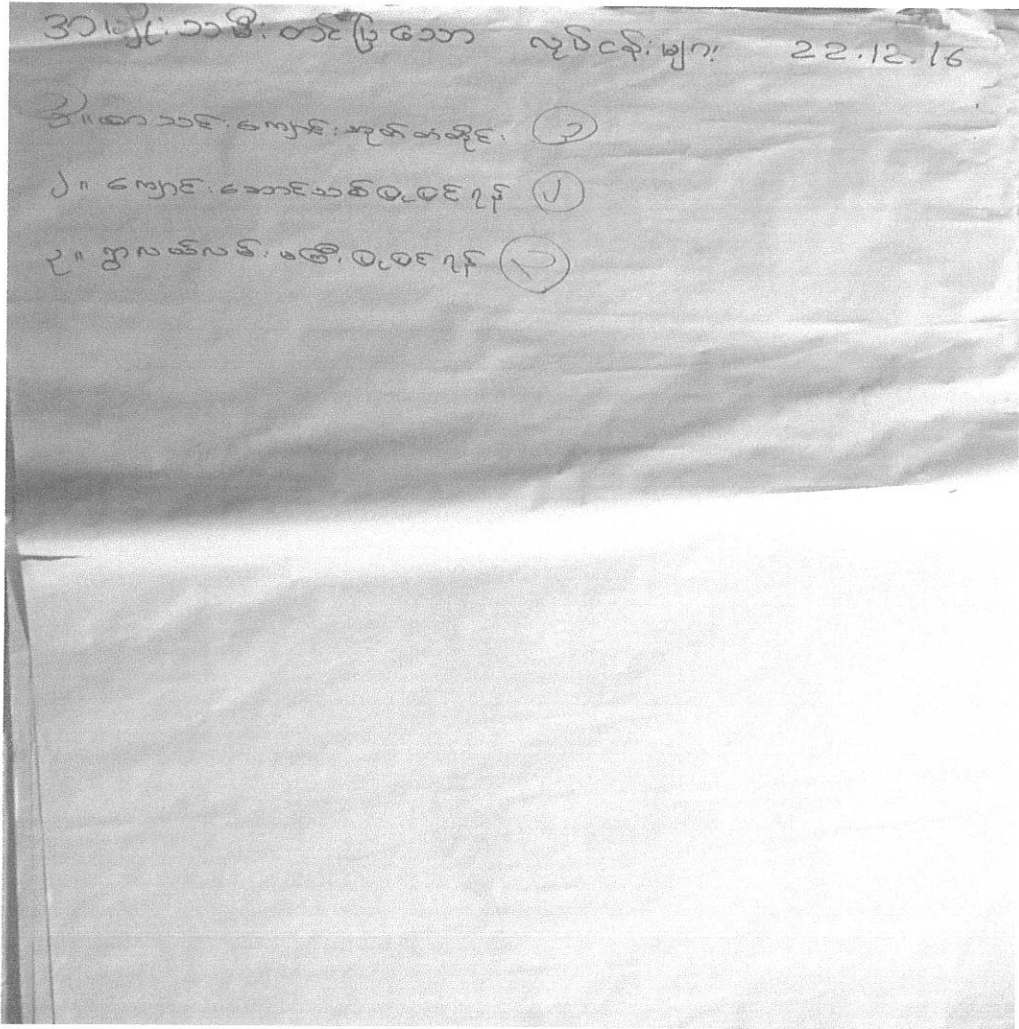 အမျိုးသမီးတင်ပြသော လုပ်ငန်းများ 22.12.16
၁။ စာသင်ကျောင်းအုတ်တံတိုင်း ၃
၂။ ကျောင်းဆောင်သစ်ပြုပြင်ရန် ၂
၃။ ရွာလယ်လမ်းမကြီးပြုပြင်ရန်